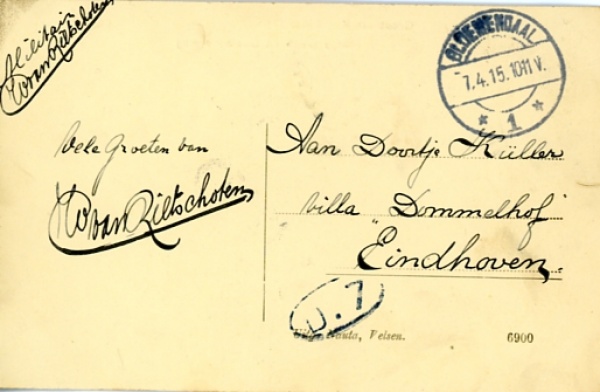 Militair
W van Rietschoten
BLOEMENDAAL
7.4.15.10-11 V.
* 1 *
Vele Groeten van
W van Rietschoten
Aan Doortje Küller
Villa „Dommelhof"
Eindhoven.
U.7
Nauta, Velsen.
6900